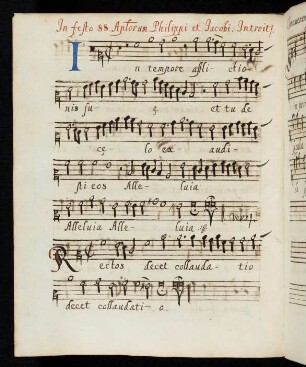 In festo SS Aptorum Philippi et Iacobi. Introit9
In tempore afflictio
nis su ę et tu de
cęlo ex audi
sti eos Alle luia
Alleluia Alle luia
Rectos decet collaudatio
decet collaudati o.